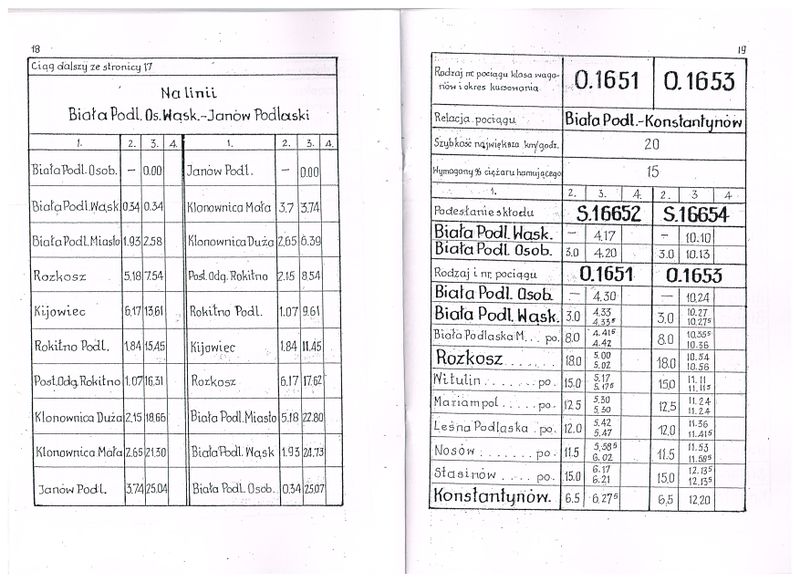 18
Ciąg dalszy ze stronicy 17
Na linii
Biała Podl. Os. Wąsk.-Janów Podlaski
1. 2. 3. 4. 1. 2. 3. 4.
Biała Podl. Osob. — 0.00 Janów Podl. — 0.00
Biała Podl. Wąsk 0.34 0.34 Klonownica Mała 3.7 3.74
Biała Podl. Miasto 1.93 2.58 Klonownica Duża 2,65 6.39
Rozkosz 5,18 7.54 Post. Odg. Rokitno 2,15 8,54
Kijowiec 6,17 13,61 Rokitno Podl. 1.07 9.61
Rokitno Podl. 1,84 15,45 Kijowiec 1,84 11.45
Post. Odg. Rokitno 1.07 16,31 Rozkosz 6.17 17.62
Klonownica Duża 2,15 18,66 Biała Podl. Miasto 5.18 22.80
Klonownica Mała 2.65 21,30 Biała Podl. Wąsk 1.93 24,73
Janów Podl. 3,74 25.04 Biała Podl. Osob. 0,34 25,07
19
Rodzaj nr. pociągu klasa wago-
nów i okres kursowania 0.1651 0.1653
Relacja pociągu Biała Podl.-Konstantynów
Szybkość największa km/godz. 20
Wymagany % ciężaru hamującego 15
1. 2. 3. 4. 2. 3 4
Podesłanie składu S.16652 S.16654
Biała Podl. Wąsk. — 4.17 — 10.10
Biała Podl. Osob. 3,0 4.20 3.0 10.13
Rodzaj i nr. pociągu 0.1651 0.1653
Biała Podl. Osob. — 4.30 — 10,24
Biała Podl. Wąsk. 3.0 4.33 3,0 10.27
4.33⁵ 10.27⁵
Biała Podlaska M... po. 8.0 4.41⁵ 8.0 10.35⁵
4.42 10.36
Rozkosz ....... 18.0 5.00 18.0 10.54
5.02 10.56
Witulin ....... po. 15.0 5.17 15,0 11.11
5.17⁵ 11.11⁵
Mariampol ..... po. 12.5 5.30 12,5 11.24
5.30 11.24
Leśna Podlaska . po. 12.0 5.42 12,0 11.36
5.47 11.41⁵
Nosów ....... po. 11.5 5,58⁵ 11.5 11.53
6.02 11.58⁵
Stasinów ..... po. 15.0 6.17 15,0 12.13⁵
6.21 12.13⁵
Konstantynów. 6.5 6,27⁵ 6,5 12,20